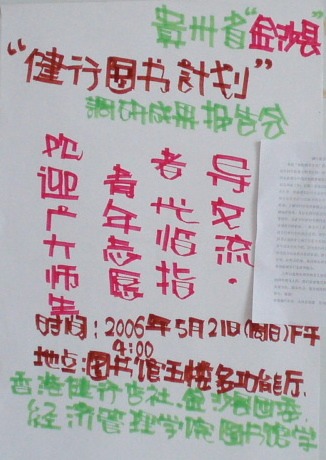 贵州省"金沙县"
"健行图书計划"
調研成果报告会
欢迎广大师生
青年志愿
者光临指
导交流.
时间:2006年5月21日(周日)下午
4:00
地点:图书馆五楼多功能厅.
香港健行 社.金沙县团委.
经济管理学院图书馆学